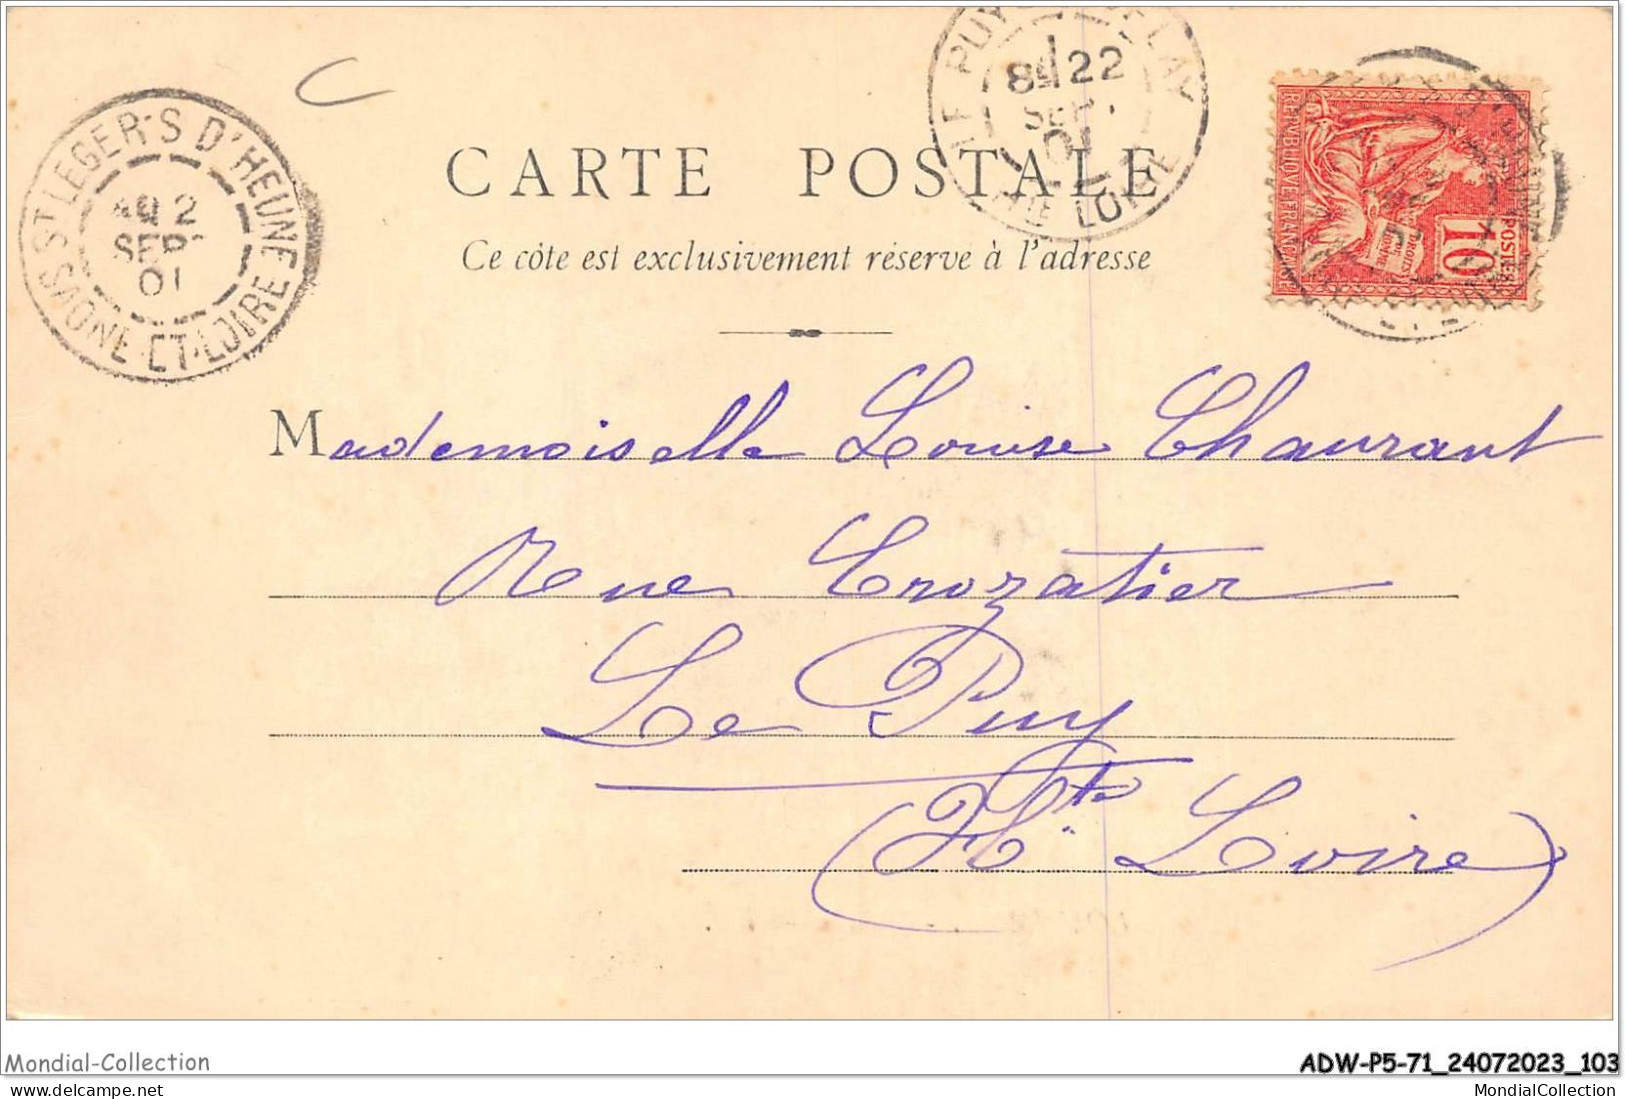 ST LEGER-S D'HEUNE
2
SEPT
01
SAONE-ET-LOIRE
LE PUY
VELAY
8E 22
SEPT
01
HTE LOIRE
CARTE POSTALE
Ce côté est exclusivement réservé à l'adresse
REPUBLIQUE FRANÇAISE
DROITS DE L'HOMME
10
POSTES
Mademoiselle Louise Chaurant
Rue Crozatier
Le Puy
(Hte Loire)
Mondial-Collection
ADW-P5-71_24072023_103
MondialCollection